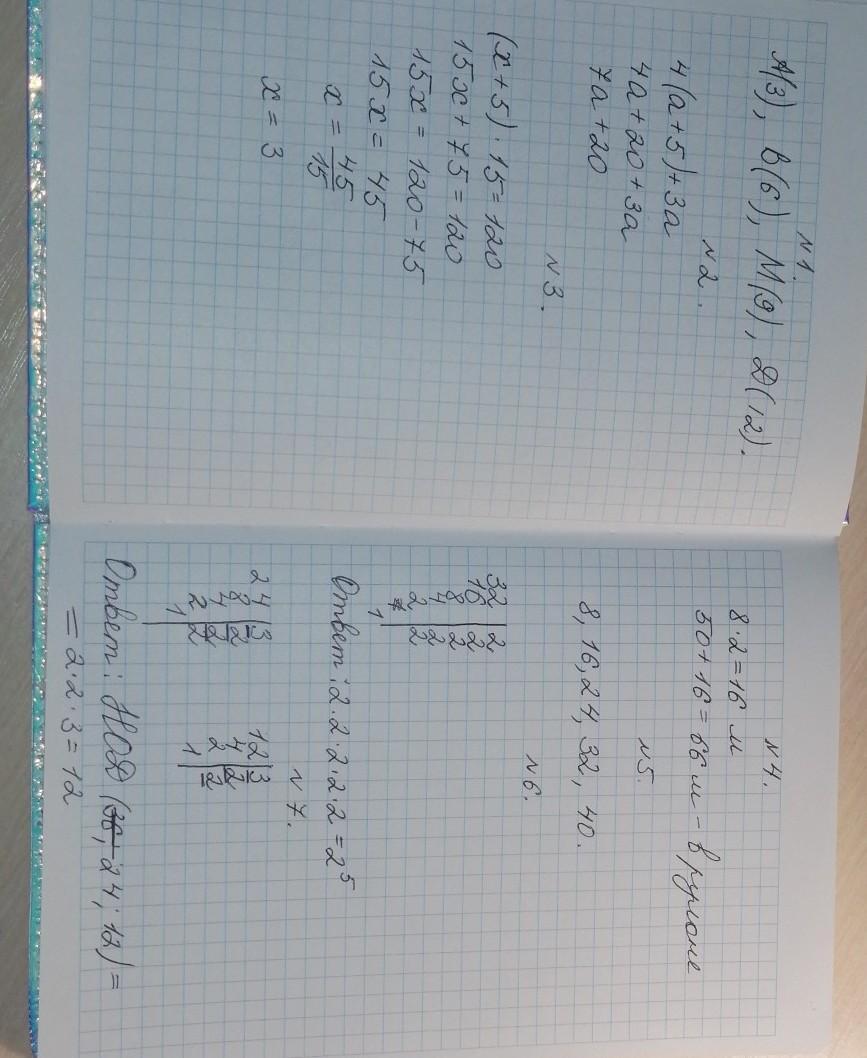 N1.
A(3), B(6), M(9), D(12).
N2.
4(a+5)+3a
4a+20+3a
7a+20
N3.
(x+5)·15=120
15x+75=120
15x=120-75
15x=45
x=45/15
x=3
N4.
8·2=16 м
50+16=66 м - в рулоне
N5.
8, 16, 24, 32, 40.
N6.
32|2
16|2
8|2
4|2
2|2
1
Ответ: 2·2·2·2·2=2⁵
N7.
24|3 12|3
8|2 4|2
4|2 2|2
2|2 1
1
Ответ: НОД (24; 12)=
=2·2·3=12